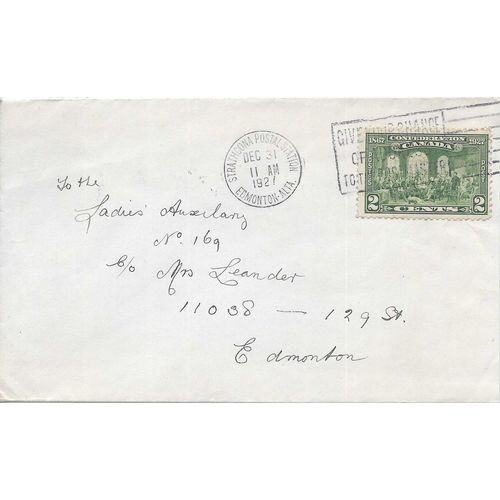 STRATHCONA·POSTAL·STATION
DEC 31
11 AM
1927
EDMONTON·ALTA.
GIVE
TO T
CONFEDERATION
1867 CANADA 1927
2 CENTS 2
To the
Ladies' Auxilary
No. 169
c/o Mrs Leander
11038 — 129 St.
Edmonton